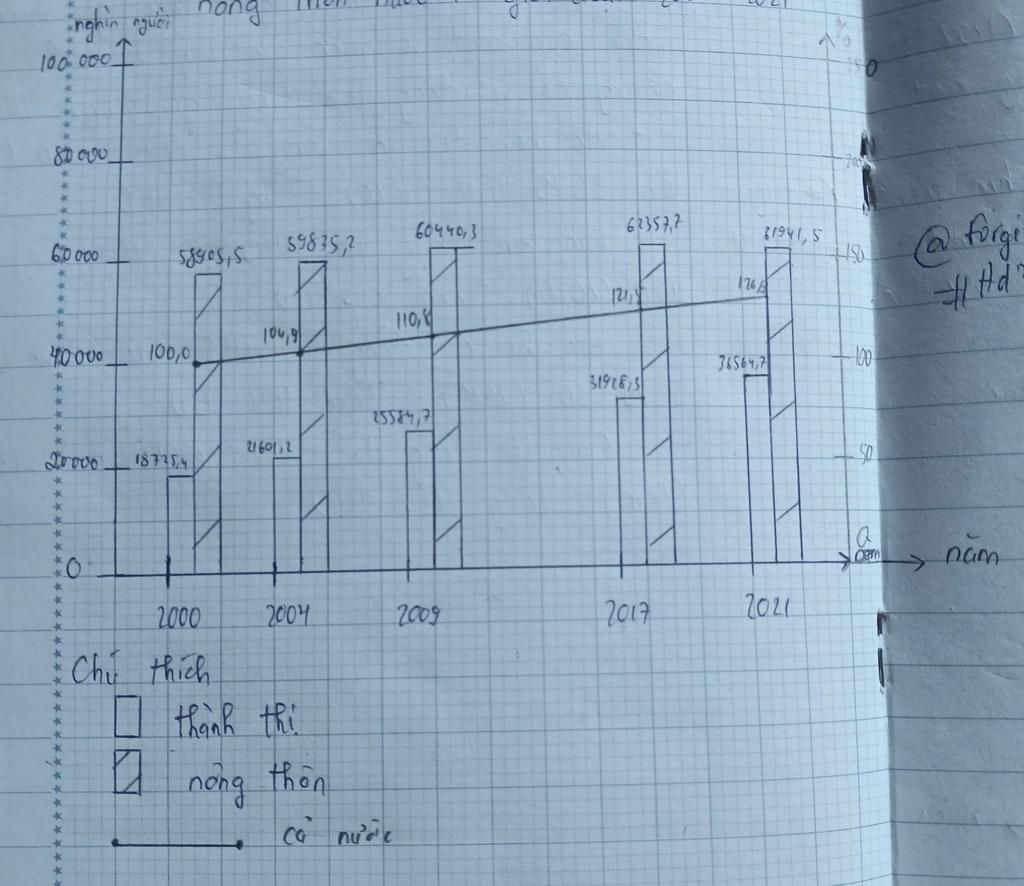 nghìn người
nông thôn nước
100 000
80 000
60 000
40 000
20 000
0
%
200
150
100
50
0
58905,5
59835,2
60440,3
62357,7
61941,5
100,0
104,9
110,8
18725,4
21601,2
25584,7
31928,3
36564,7
năm
2000
2004
2009
2017
2021
Chú thích
thành thị
nông thôn
cả nước